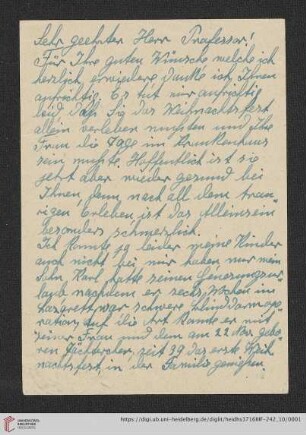 Sehr geehrter Herr Professor!
Für Ihre guten Wünsche, welche ich
herzlich erwiedere danke ich Ihnen
aufrichtig. Es tut mir aufrichtig
leid, daß Sie das Weihnachtsfest
allein verleben mußten und Ihre
Frau die Tage im Krankenhaus
sein mußte. Hoffentlich ist sie
jetzt aber wieder gesund bei
Ihnen, denn nach all dem trau-
rigen Erleben ist das Alleinsein
besonders schmerzlich.
Ich konnte ja leider meine Kinder
auch nicht bei mir haben nur mein
Sohn Karl hatte seinen Genesungsur-
laub nachdem er sechs Wochen im
Lazarett war schwere Blinddarmope-
ration, auf die Art konnte er mit
seiner Frau und dem am 22. Nov. gebo-
renen Töchterchen, seit 39 das erste Weih-
nachtsfest in der Familie genießen.
https://digi.ub.uni-heidelberg.de/diglit/heidhs3716IIIF-242_10/0001
UNIVERSITÄTS-
BIBLIOTHEK
HEIDELBERG